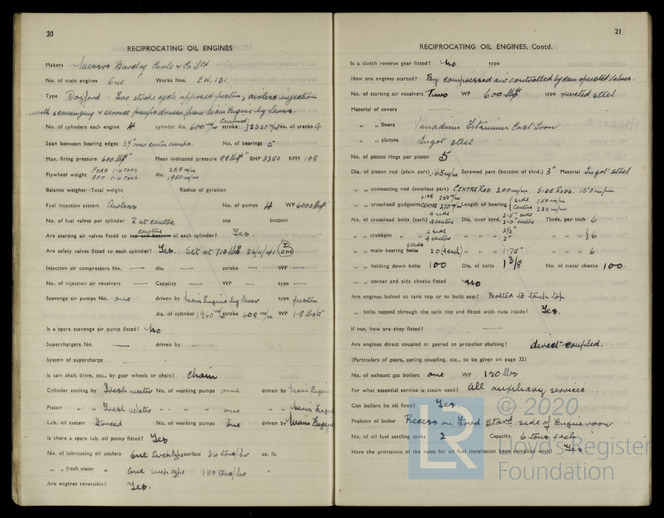 20
RECIPROCATING OIL ENGINES
Makers Messrs Barclay Curle & Co Ltd
No. of main engines One Works Nos. E.W. 131.
Type Doxford - Two stroke cycle opposed piston, airless injection
with scavenging & pumps driven from Main Engine by levers.
No. of cylinders each engine 4 cylinder dia. 600 m/m Combined stroke 2320 m/m No. of cranks
Span between bearing edges No. of bearings 5
Max. firing pressure 600 lbs/□" Mean indicated pressure 88 lbs/□" BHP 3350 RPM 108
Flywheel weight FORD 1.6 TONS AFT 1.6 TONS dia.
Balance weights—Total weight Radius of gyration
Fuel injection system Airless No. of pumps 4 WP 6000 lbs/□"
No. of fuel valves per cylinder 2 at centre top bottom
Are starting air valves fitted to top and bottom centre of each cylinder? Yes.
Are safety valves fitted to each cylinder? Yes. Set at 710 lbs
Injection air compressors No. — dia. — stroke — WP — type —
No. of injection air receivers — Capacity — WP — type —
Scavenge air pumps No. one driven by Main Engine by lever type piston
dia. of cylinder 1960 m/m stroke 608 m/m WP 1.8 lbs/□"
Is a spare scavenge air pump fitted? No
Superchargers No. — driven by —
System of supercharge —
Is cam shaft drive, etc., by gear wheels or chain? Chain
Cylinder cooling by Fresh water No. of working pumps one driven by Main Engine
Piston " " Fresh Water " " " " one " " Main Engine
Lub. oil system Forced No. of working pumps One driven by Main Engine
Is there a spare lub. oil pump fitted? Yes
No. of lubricating oil coolers One surface sq. ft.
" " fresh water " One 150 tons/hr
Are engines reversible? Yes.
21
RECIPROCATING OIL ENGINES, Contd.
Is a clutch reverse gear fitted? No type
How are engines started? By compressed air controlled by cam operated valves.
No. of starting air receivers Two WP 600 lbs/□" type riveted steel
Material of covers —
" " liners Vanadium Titanium Cast Iron
" " pistons Ingot steel
No. of piston rings per piston 5
Dia. of piston rod (plain part) 165 m/m Screwed part (bottom of thrd.) 3" Material Ingot steel
" " connecting rod (smallest part) CENTRE ROD 200 m/m SIDE RODS. 150 m/m
" " crosshead gudgeon Length of bearing
No. of crosshead bolts (each) Dia. over thrd. Thrds. per inch 6
" " crankpin " " " " 6
" " main bearing bolts 20 (4 each) " " 1.75" " " 6
" " holding down bolts 100 Dia. of bolts 1 3/8 No. of metal chocks 100
" " corner and side chocks fitted No
Are engines bolted to tank top or to built seat? Bolted to tank top
" bolts tapped through the tank top and fitted with nuts inside? Yes.
If not, how are they fitted? —
Are engines direct coupled or geared to propeller shafting? direct-coupled.
(Particulars of gears, spring coupling, etc., to be given on page 32)
No. of exhaust gas boilers one WP 120 lbs
For what essential service is steam used? All auxiliary services
Can boilers be oil fired? Yes
Position of boiler Recess on Ford Starbd side of Engine room
No. of oil fuel settling tanks 2 Capacity 6 tons each
Have the provisions of the rules for oil fuel installation been complied with? Yes
LR © 2020
Lloyd's Register
Foundation